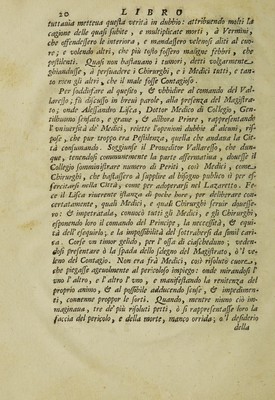 20 LIBRO
tuttauia metteua questa verità in dubbio: attribuendo molti la
cagione delle quasi subite, e multiplicate morti, à Vermini,
che offendessero le interiora, e mandassero velenosi aliti al cuo-
re; e volendo altri, che più tosto fossero maligne febbri, che
pestilenti. Quasi non bastauano i tumori, detti volgarmente
ghiandusse, à persuadere i Chirurghi, e i Medici tutti, e tan-
to rieu gli altri, che il male fosse Contagioso.
Per supplire al quesito, & vbbidire al comando del Val-
laresso, fù discusso in breui parole, alla presenza del Magistra-
to; onde Alessandro Lisca, Dottor Medico di Collegio, Gen-
tilhuomo sensato, e graue, & allhora Priore, rappresentando
l'vniuersità de' Medici, riiette l'opinioni dubbie d'alcuni, ris-
pose, che pur troppo era Pestilenza, quella che andaua la Cit-
tà consumando. Soggiunse il Proueditor Vallaresso, che dun-
que, tenendosi communemente la parte affermatiua, douesse il
Collegio somministrare numero di Periti, così Medici, come
Chirurghi, che bastassero à supplire al bisogno publico sì per es-
sercitarsi nella Città, come per adoprarsi nel Lazaretto. Fe-
ce il Lisca riuerente istanza di poche hore, per deliberare con-
certatamente, quali Medici, e quali Chirurghi seruir douesse-
ro: & impetratala, conuocò tutti gli Medici, e gli Chirurghi,
esponendo loro il comando del Principe, la necessità, & equi-
tà dell'esequirlo; e la impossibilità del sottrahersi da simil cari-
ca. Corse vn timor gelido, per l'ossa di ciascheduno; veden-
dosi presentare ò la spada dello sdegno del Magistrato, ò'l ve-
leno del Contagio. Non era frà Medici, così risoluto cuore,
che piegasse ageuolmente al pericoloso impiego: onde mirandosi l'
vno l'altro, e l'altro l'vno, e manifestando la renitenza del
proprio animo, & al possibile adducendo scuse, & impedimen-
ti, conuenne proppor le sorti. Quando, mentre niuno ciò im-
maginaua, tre de' più risoluti petti, ò si rappresentasse loro la
faccia del pericolo, e della morte, manco orrida; o'l desiderio
della